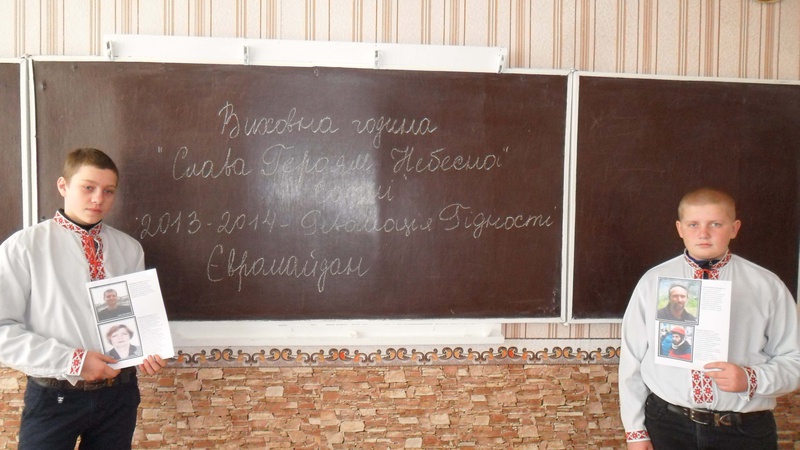 Виховна година
"Слава Героям Небесної
сотні"
2013-2014 - Революція Гідності
Євромайдан